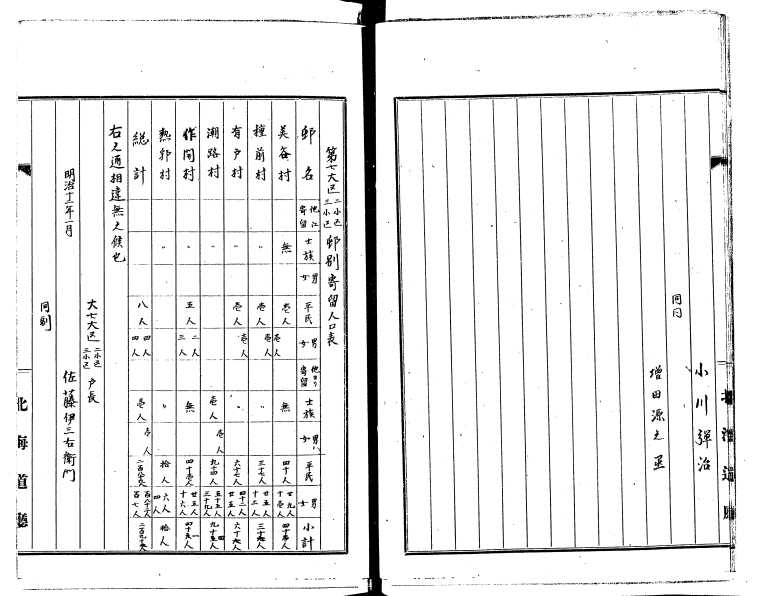 小川彈治
同日
増田源之丞
北海道廳
第七大区二小区三小区邨別寄留人口表
邨名 他江寄留 士族 男女 平民 男女 他ヨリ寄留 士族 男女 平民 男女 小計
美谷村 無 壱人 壱人 無 四十人
種前村 〃 壱人 壱人 〃 三十七人 廿五人 十二人 三十七人
有戸村 〃 壱人 壱人 〃 六十七人 四十二人 廿五人 六十七人
潮路村 〃 壱人 壱人 九十四人 五十五人 三十九人
作開村 〃 五人 二人 三人 無 四十壱人 廿五人 十六人
熱郛村 〃 〃 拾人 六人 四人 拾人
総計 八人 四人 四人 壱人 壱人
右之通相違無之候也
明治十一年一月
大七大区二小区三小区戸長
佐藤伊三右衛門
同副
北海道廳